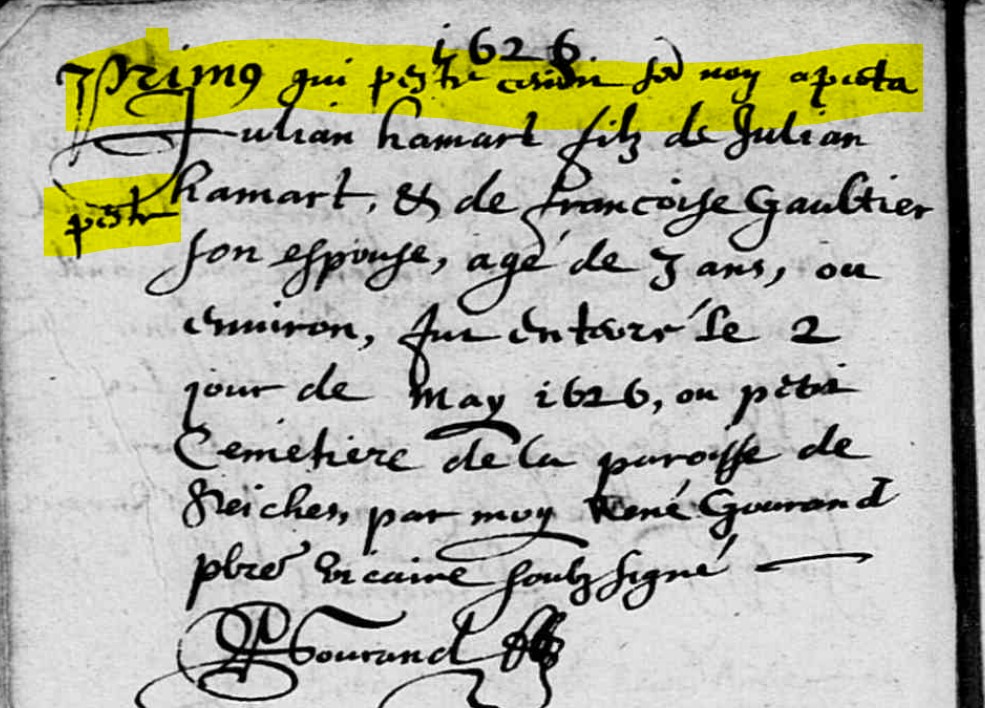 1626
Primo qui peste
Julian hamart filz de Julian
hamart, & de francoise Gaultier
peste
son espouse, agé de 3 ans, ou
environ, fut enterré le 2
jour de May 1626, ou petit
Cemetiere de la paroisse de
Seiches, par moy René Gourand
pbre vicaire soubzsigné
Gourand